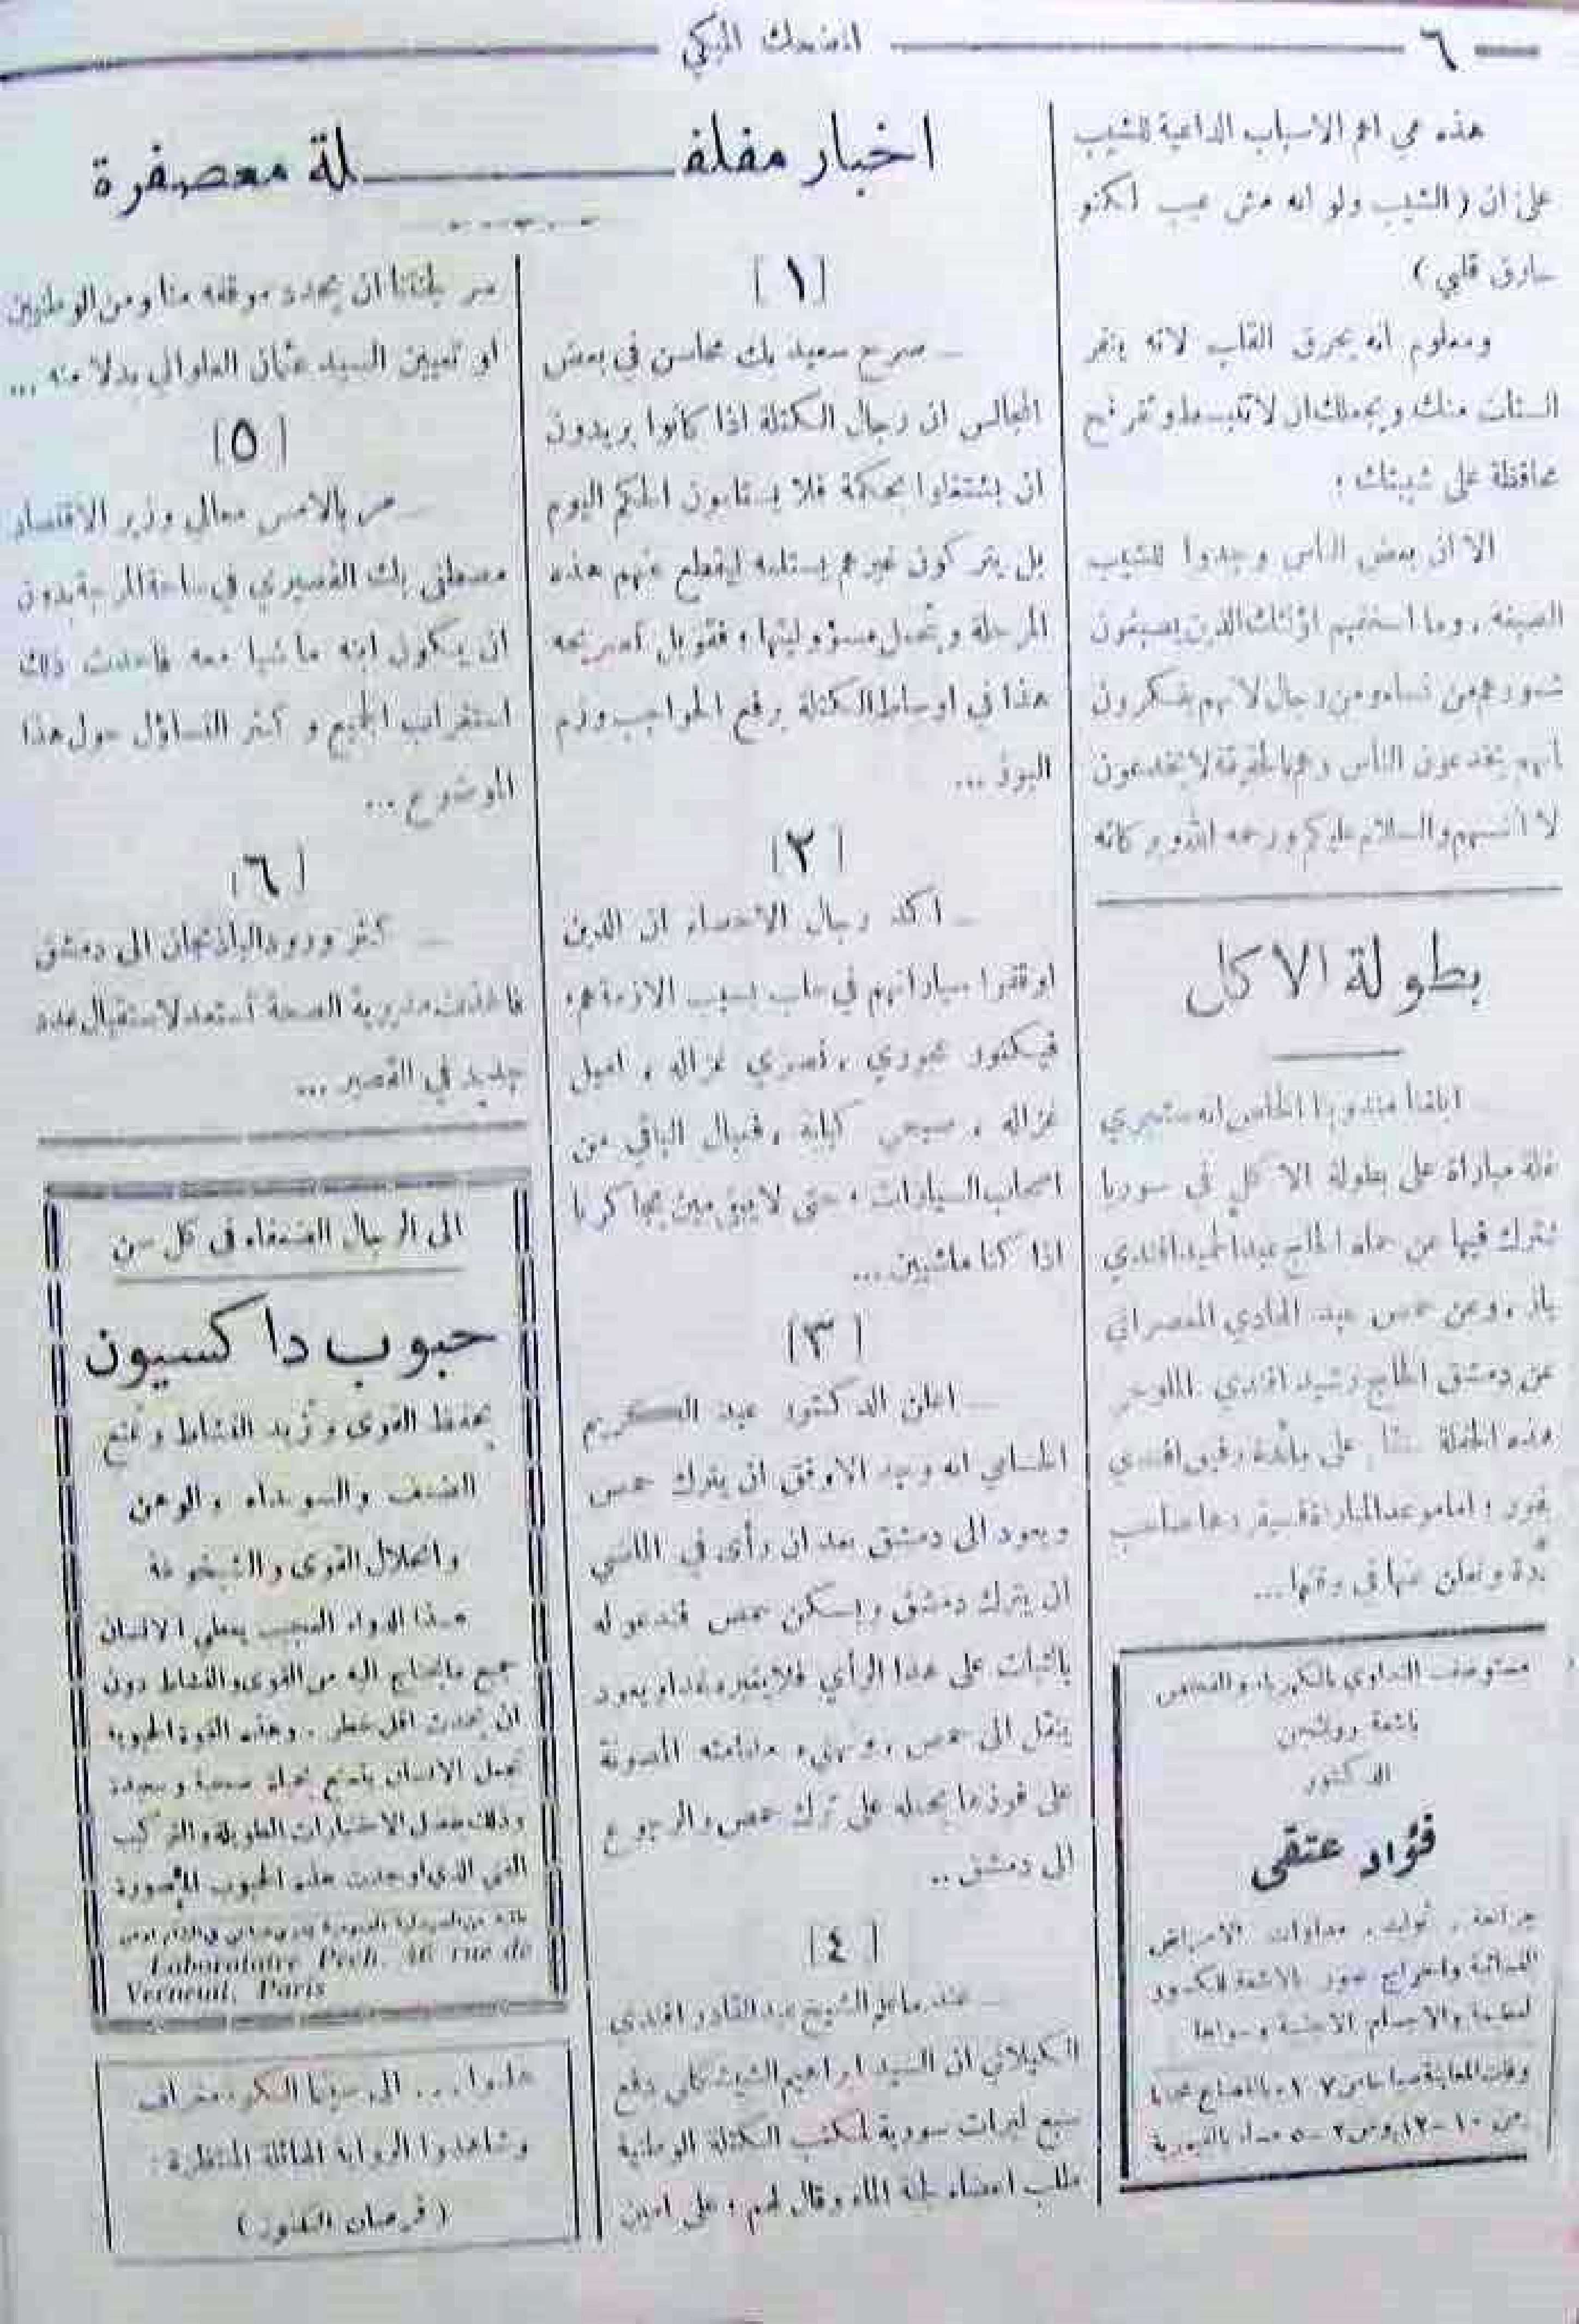 ٦
المضحك المبكي
هذه هي اهم الاسباب الداعية للشيب
على ان ( الشيب ولو انه مش عيب لكنو
حارق قلبي )
ومعلوم انه يحرق القلب لانه ينفر
الستات منك ويجعلك ان لا تنبسط وتفرفح
محافظة على شيبتك ؛
الا ان بعض الناس وجدوا للشيب
الصبغة ، وما اسخفهم اولئك الذين يصبغون
شعورهم من نساء ومن رجال لانهم يفتكرون
انهم يخدعون الناس وهم بالحقيقة لا يخدعون
الا انفسهم والسلام عليكم ورحمة الله وبركاته
بطولة الاكل
ابلغنا مندوبنا الخاص انه ستجري
حفلة مباراة على بطولة الاكل في سوريا
يشترك فيها عن حماه الحاج عبد الحميد افندي
وعن حمص عبد الهادي المعصراني
عن دمشق الحاج رشيد افندي
هذه الحفلة على مائدة رفيق افندي
وتعلن عنها في وقتها...
مستوصف التداوي بالكهرباء والفحص
باشعة رونتجن
الدكتور
فؤاد عتقي
جراحة ، توليد ، مداواة الامراض
النسائية واخراج صور الاشعة للكسور
العظيمة والاجسام الاجنبية وسواها
اخبار مفلفلة معصفرة
[١]
— صرح سعيد بك محاسن في بعض
المجالس ان رجال الكتلة اذا كانوا يريدون
ان يشتغلوا بحكمة فلا يستلمون الحكم اليوم
بل يتركون غيرهم يستلمه ليقطع عنهم هذه
المرحلة ويتحمل مسؤوليتها ، فقوبل تصريحه
هذا في اوساط الكتلة برفع الحواجب وزم
البوز ...
[٢]
— اكد رجال الاحصاء ان الذين
اوقفوا سياراتهم في حلب بسبب الازمة هم :
فيكتور خوري ، نصري غزاله ، اميل
غزاله ، صبحي كبابه ، فعبال الباقي من
اصحاب السيارات ، حتى لا يبقى مين يحاكرنا
اذا كنا ماشيين ...
[٣]
— اعلن الدكتور عبد الكريم
انه وجد الاوفق ان يترك حمص
ويعود الى دمشق بعد ان رأى في الماضي
ان يترك دمشق ويسكن حمص فندعو له
بالثبات على هذا الرأي فلا يغيره غدا ويعود
ينقل الى حمص
على فوزها بحمله على ترك حمص والرجوع
الى دمشق ..
[٤]
— عندما علم الشيخ عبد القادر افندي
الكيلاني ان السيد ابراهيم الشيشكلي دفع
سبع ليرات سورية لمكتب الكتلة الوطنية
طلب اعضاء لجنة الماء وقال لهم : على امين
سر لجنتنا ان يحدد موقفه منا ومن الوطنيين
او تعيين السيد عثمان العلواني بدلا منه ...
[٥]
— مر بالامس معالي وزير الاقتصاد
مصطفى بك القصيري في ساحة المرجة بدون
ان يكون ابنه ماشيا معه فاحدث ذلك
استغراب الجميع وكثر التساؤل حول هذا
الموضوع ...
[٦]
— كثر ورود الباذنجان الى دمشق
فاخذت مديرية الصحة تستعد لاستقبال عدد
جديد في القصير ...
الى الرجال الضعفاء في كل سن
حبوب داكسيون
تحفظ القوى وتزيد النشاط وتمنع
الضعف والسويداء والوهن
وانحلال القوى والشيخوخة
هذا الدواء العجيب يعطي الانسان
جميع ما يحتاج اليه من القوى والنشاط دون
ان يحدث اقل خطر . وهذه القوة الحيوية
تجعل الانسان يتمتع بحياة صحية وسعيدة
وذلك بفضل الاختبارات الطويلة والتركيب
الفني الذي اوجدت هذه الحبوب المأمورة
Laboratoire Pech. 46 rue de
Verneuil, Paris
هلموا ... الى سينما
وشاهدوا الرواية الهائلة المنتظرة :
( قرصان الكنوز )